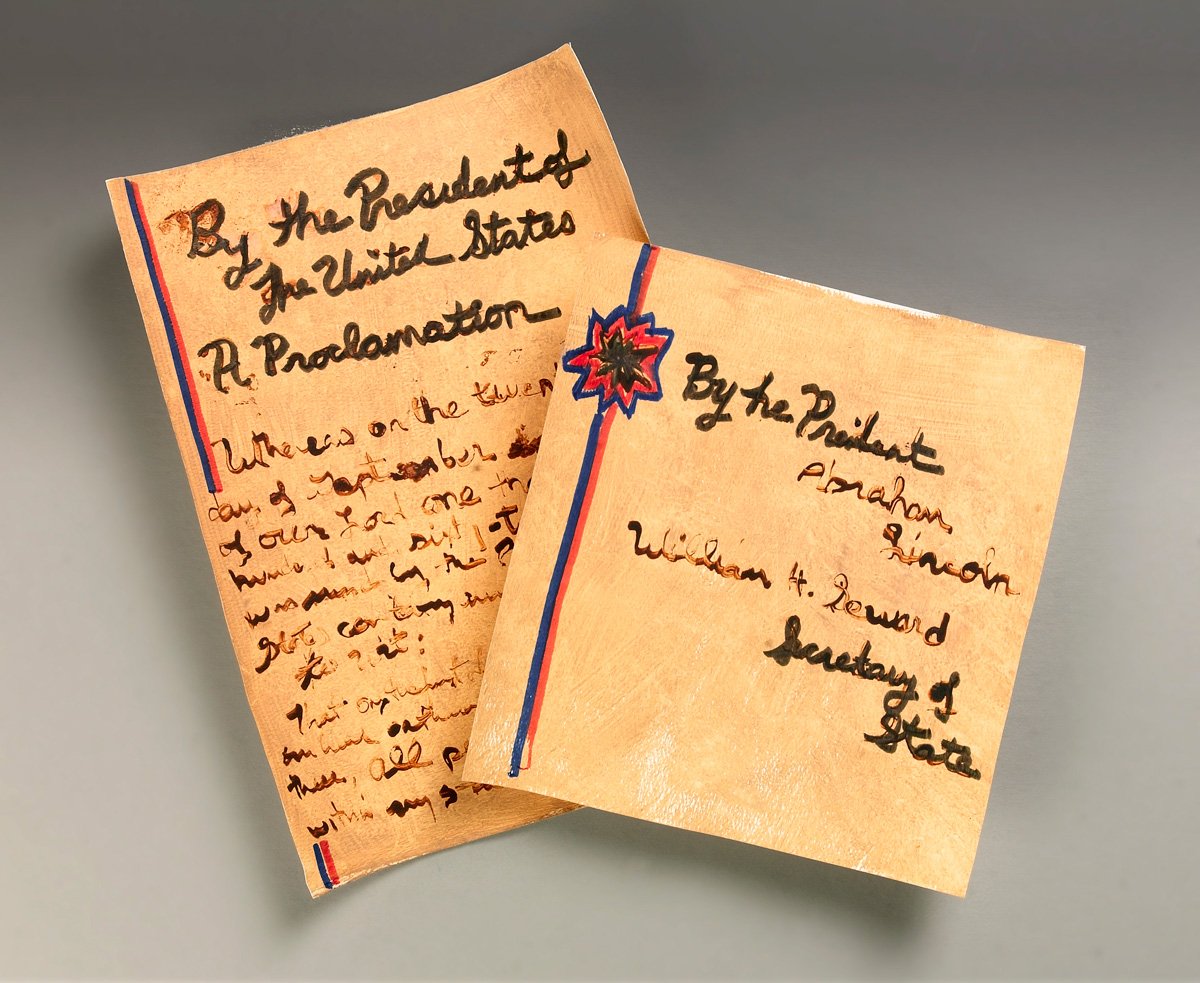 By the President of
The United States
A Proclamation
Whereas on the twen
day of September
of our Lord one th
hundred and sixty-t
was by the
States containing
to wit:
That on the first d
on the
three, all p
within any s
By the President
Abraham
Lincoln
William H. Seward
Secretary of
State